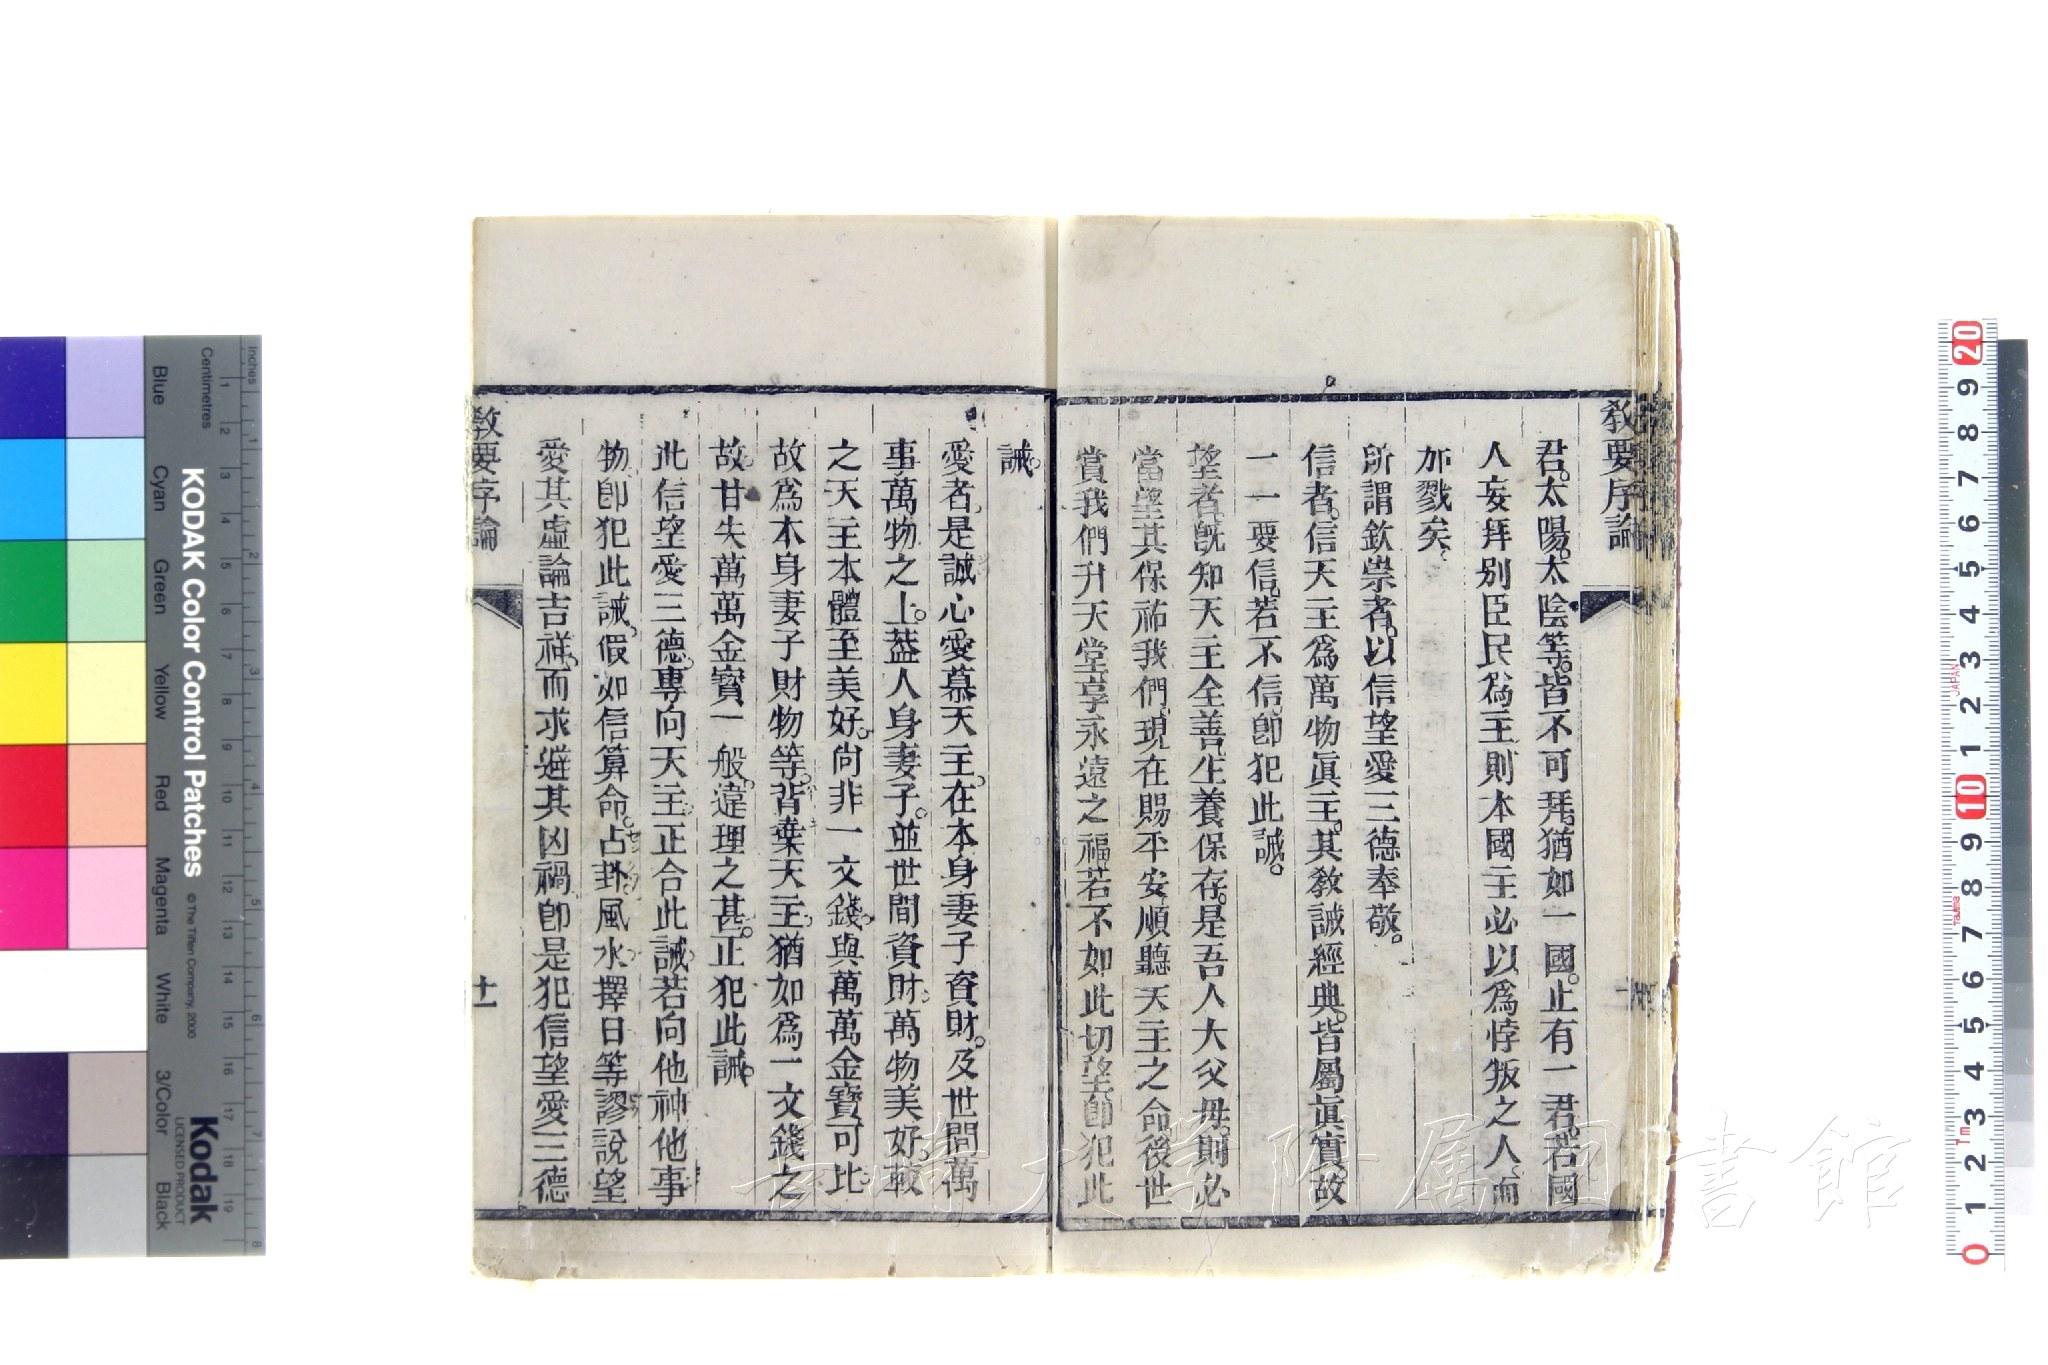 教要序論
君。太陽。太陰等。皆不可拜。猶如一國。止有一君。若國
人妄拜别臣民爲主。則本國主必以爲悖叛之人。而
加戮矣。
所謂欽崇者。以信望愛三德奉敬。
信者。信天主爲萬物眞主。其教誡經典。皆屬眞實。故
一一要信。若不信。卽犯此誡。
望者。旣知天主全善。生養保存。是吾人大父母。則必
當望其保祐我們。現在賜平安順聽天主之命。後世
賞我們升天堂。享永遠之福。若不如此切望。卽犯此
誡。
愛者。是誠心愛慕天主。在本身妻子資財。及世間萬
事萬物之上。葢人身妻子。並世間資財。萬物美好。較
之天主本體至美好。尙非一文錢。與萬萬金寶可比。
故爲本身妻子財物等。背棄天主。猶如爲一文錢之
故。甘失萬萬金寶一般。違理之甚。正犯此誡。
此信望愛三德。專向天主。正合此誡。若向他神他事
物。卽犯此誡。假如信算命。占卦。風水。擇日等謬說。望
愛其虛論吉祥。而求避其凶禍。卽是犯信望愛三德
教要序論
十一
長崎大学附属図書館
KODAK Color Control Patches
© The Tiffen Company, 2000
Kodak
LICENSED PRODUCT
Inches
Centimetres
Blue
Cyan
Green
Yellow
Red
Magenta
White
3/Color
Black
JAPAN